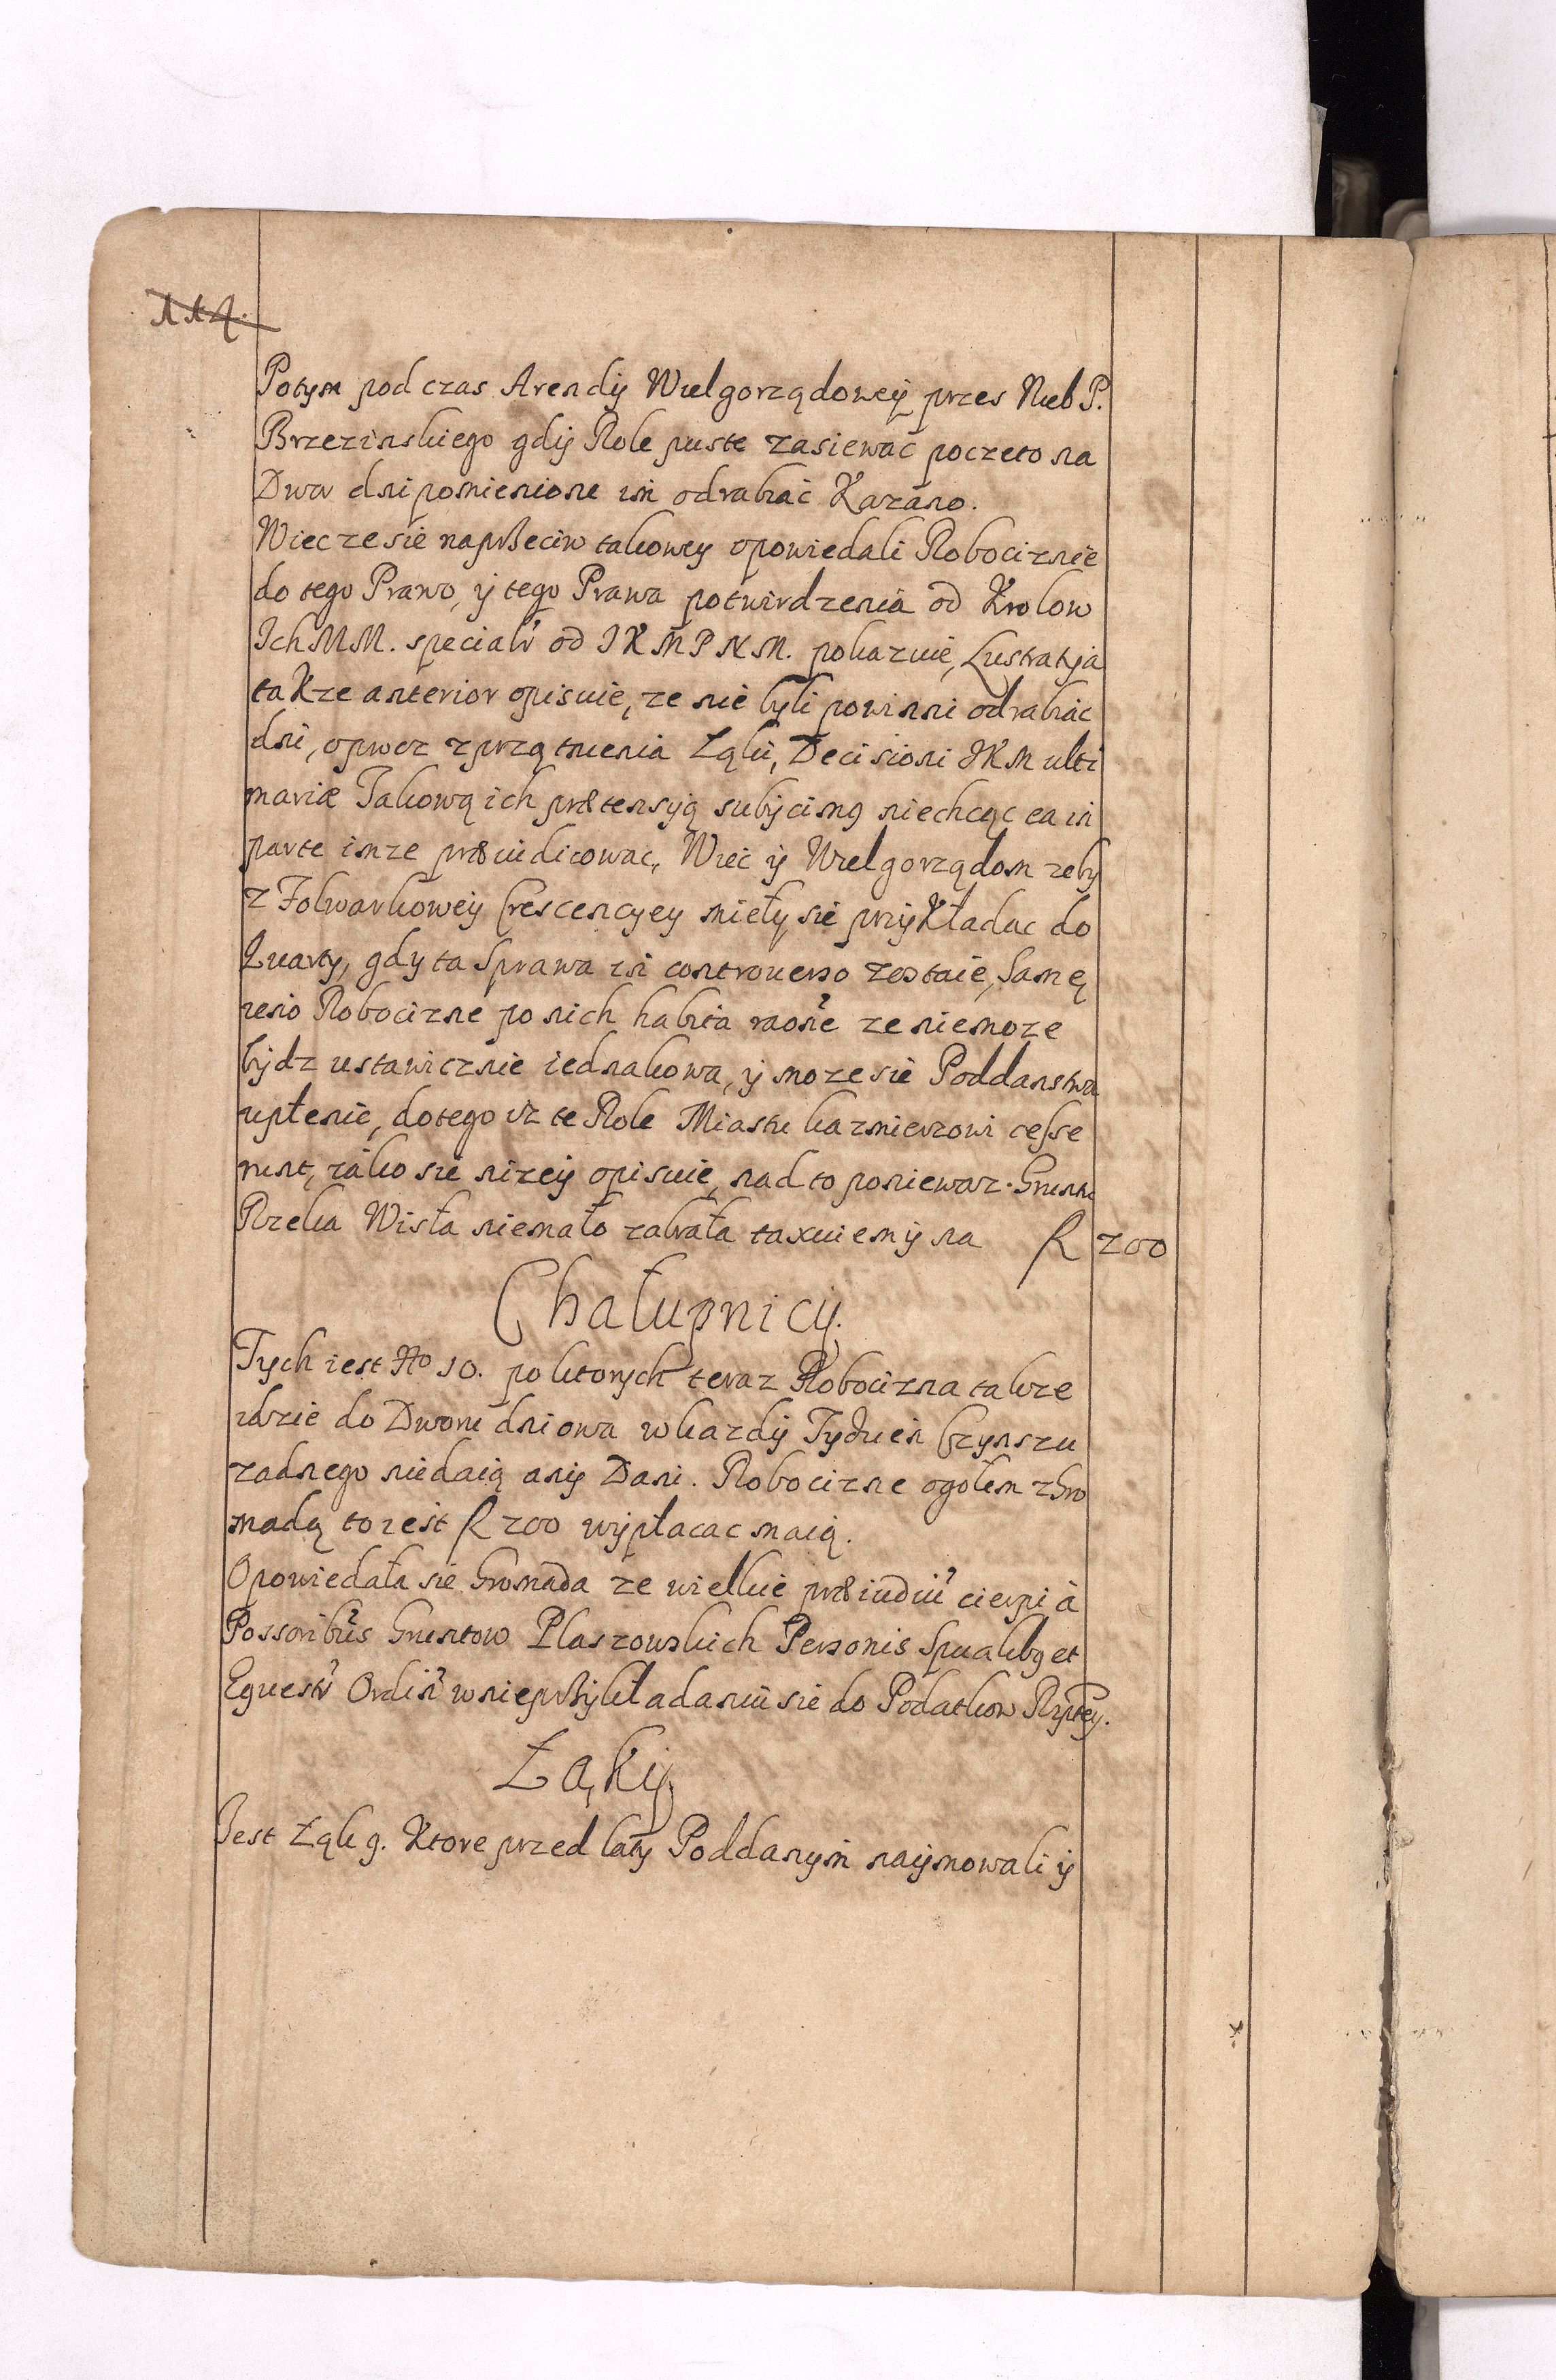 114.
Potym podczas Arendy Wielgorządowey przes Nieb P.
Brzezinskiego gdy Role puste zasiewać poczeto na
Dwa dni pomienione im odrabiać Kazano.
Wiec ze sie naprzeciw takowey opowiedali Robociznie
do tego Prawo, y tego Prawa potwirdzenia od Krolow
Ich MM. specialr od JKMPNM. pokazuie, Lustratja
takze anterior opisuie, ze nie byli powinni odrabiac
dni, oprocz zprzątnienia Łąki, Decisioni JKM ulti
mariæ Takową ich prætensyą subijcimus niechcąc ea in
parte im ze præiudicowac, Wiec y Wielgorządom zeby
z Folwarkowey Crescencyey miely sie przykładac do
Quarty, gdy ta Sprawa in controuerso zostaie, Samę
iesio Robocizne po nich habita raone ze niemoze
bydz ustawicznie iednakowa, y moze sie Poddanstwa
uplenic, do tego iz te Role Miastu kazmierzowi cesse
runt, iako sie nizey opisuie, nad to poniewaz Gruntu
Rzeka Wisła niemało zabrała taxuiemy na f 200
Chałupnicy.
Tych iest No 10. po ktorych teraz Robocizna takze
idzie do Dworu dniowa w kazdy Tydzien Czynszu
zadnego niedaią any Dani. Robocizne ogołem z Gro
madą to iest f 200 wypłacac maią.
Opowiedała sie Gromada ze wielkie præiudiu cierpi à
Possoribus Gruntow Plaszowskich Personis Spualibus et
Equestr Ordin w nieprzykładaniu sie do Podatkow Rzptey.
Łąky.
Jest Łąk 9. Ktore przed laty Poddanym naymowali y